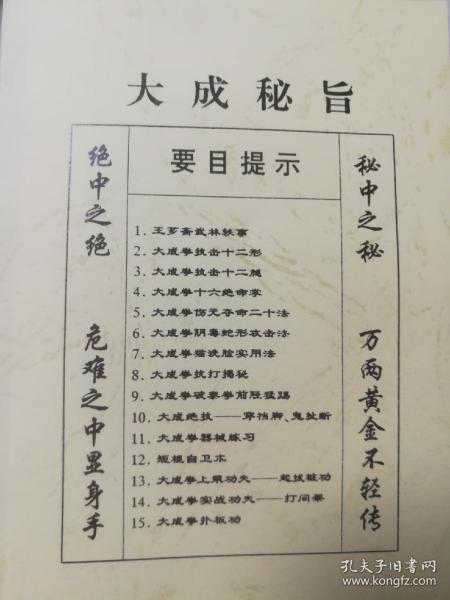 大成秘旨
要目提示
秘中之秘 万两黄金不轻传
绝中之绝 危难之中显身手
1. 王芗斋武林轶事
2. 大成拳技击十二形
3. 大成拳技击十二腿
4. 大成拳十六绝命掌
5. 大成拳伤死夺命二十法
6. 大成拳阴毒蛇形攻击法
7. 大成拳猫洗脸实用法
8. 大成拳技打揭秘
9. 大成拳破拳前胫猛踢
10. 大成绝技——穿裆脚、鬼扯断
11. 大成拳器械练习
12. 短棍自卫术
13. 大成拳上乘功夫——起拔桩功
14. 大成拳实战功夫——打闷晕
15. 大成拳扑板功
孔夫子旧书网
www.kongfz.com